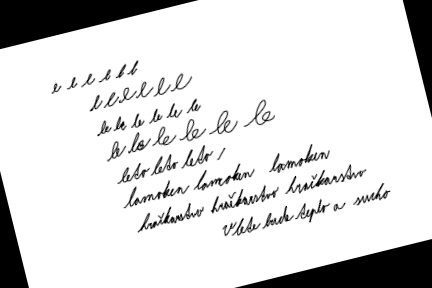 e l l l l l
l l l l l l
le le le le le le
le le le le le le
leto leto leto /
lamoken lamoken lamoken
hračkarstvo hračkarstvo hračkarstvo
V lete bude teplo a sucho